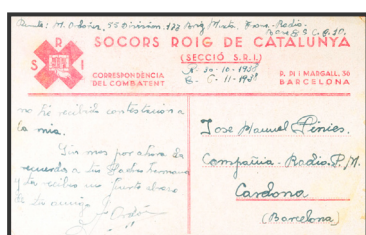 M. Ordóñez, 55 Division, 177 Brig. Mixta
SOCORS ROIG DE CATALUNYA
(SECCIÓ S.R.I.)
S R I
CORRESPONDENCIA
DEL COMBATENT
30-10-1938
11-1938
P. PI I MARGALL, 36
BARCELONA
no he recibido contestación a
la mia.
Sin mas por ahora da
recuerdos a tus Padres hermanos
y tu recibes un fuerte abrazo
de tu amigo
Jose Manuel Pinies.
Compañia Radio. P. M.
Cardona
(Barcelona)